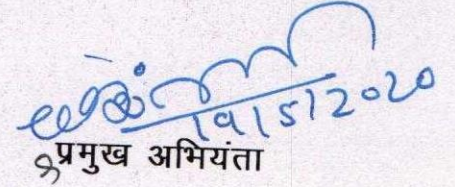 19/5/2020
प्रमुख अभियंता